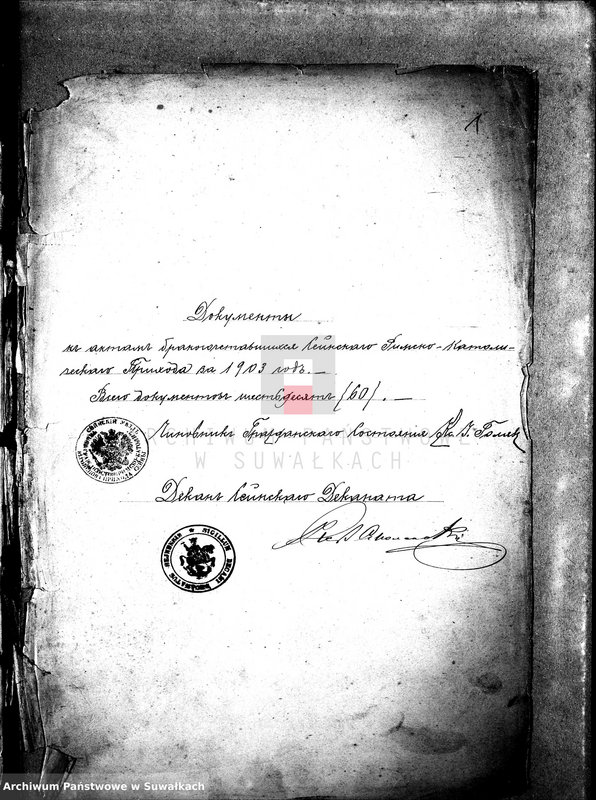 1
Документы
къ актамъ бракосочетавшихся Сейнскаго Римско-Католи-
ческаго Прихода за 1903 годъ. —
Всего документовъ шестьдесятъ (60). —
Чиновникъ Гражданскаго Состоянія Кс. В.
ARCHIWUM PAŃSTWOWE
W SUWAŁKACH
Деканъ Сейнскаго Деканата
Archiwum Państwowe w Suwałkach